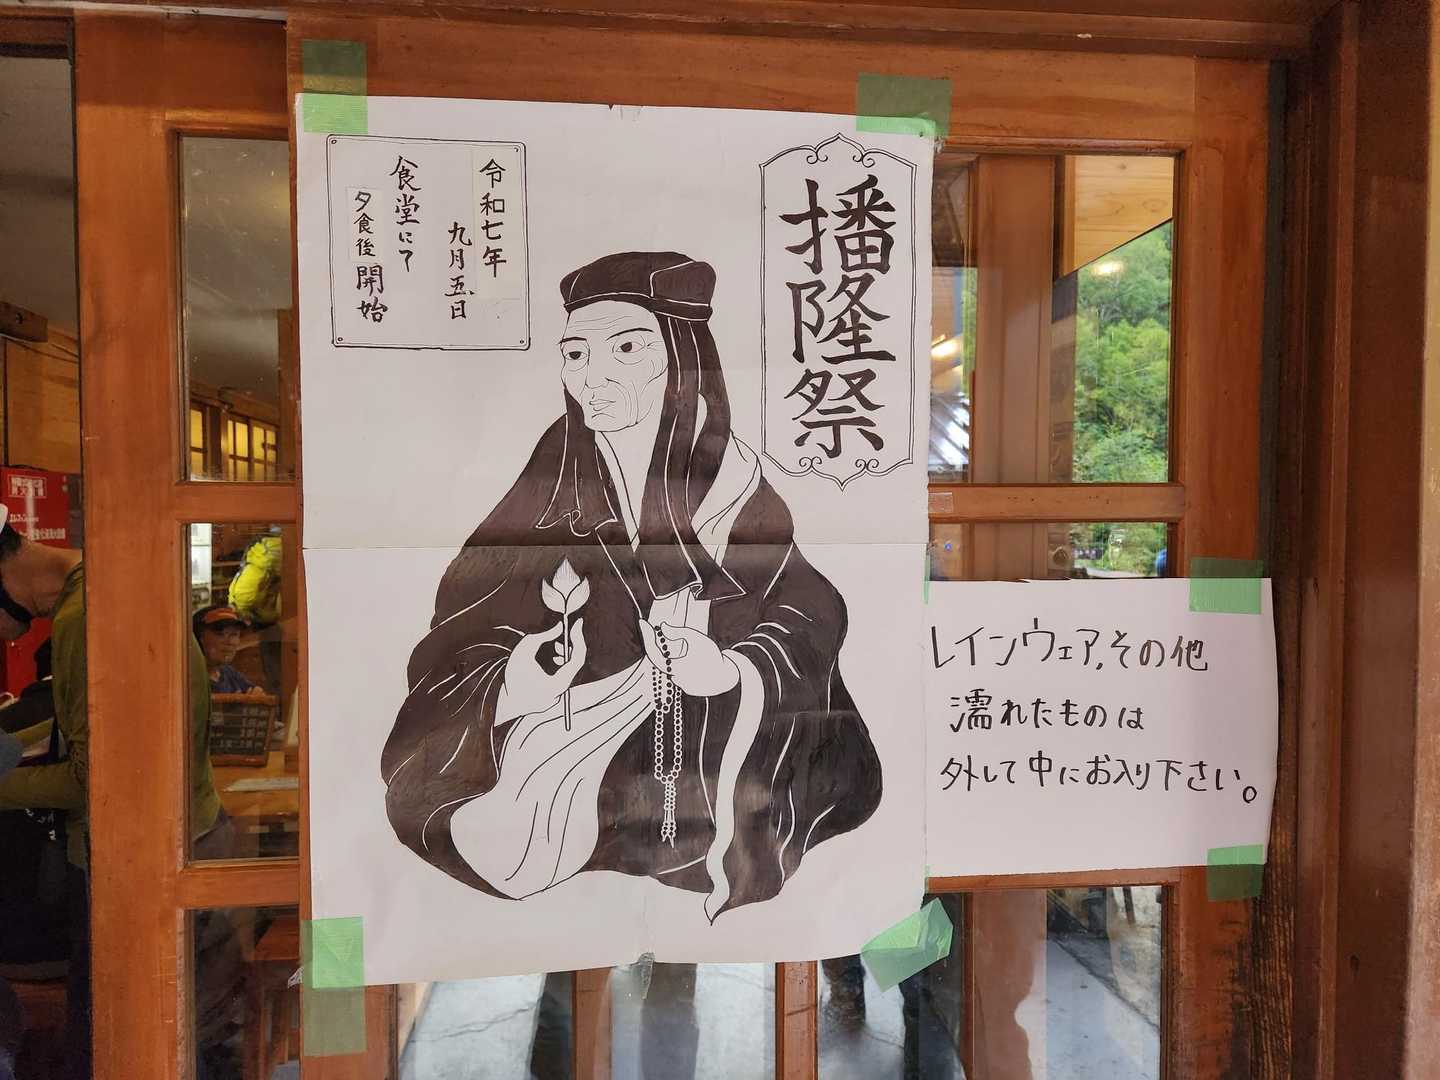 播隆祭
令和七年
九月五日
食堂にて
夕食後開始
レインウェア、その他
濡れたものは
外して中にお入り下さい。